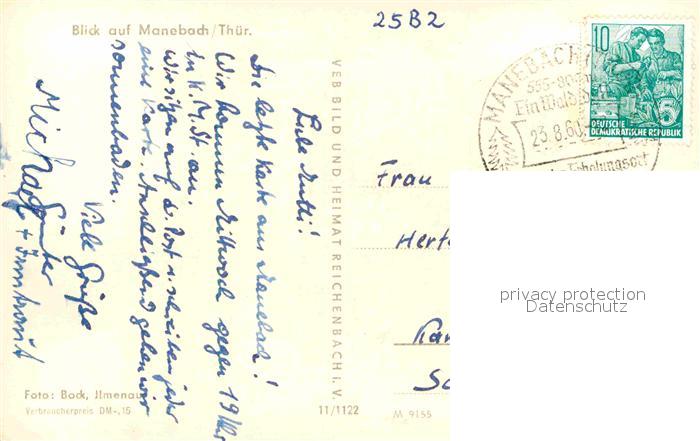 Blick auf Manebach/Thür.
25B2
Liebe Mutti!
Die letzte Karte aus Manebach!
Wir kommen Mittwoch gegen 19 Uhr
in K.M.St. an.
Wir sitzen auf d. Post u. schreiben jeder
eine Karte. Anschließend gehen wir
sonnenbaden.
Viele Grüße
Günter
+ Irmtraut
Michael
Foto: Bock, Ilmenau
Verbraucherpreis DM -,15
VEB BILD UND HEIMAT REICHENBACH i. V.
11/1122
M 9155
MANEBACH
23.8.60
Erholungsort
10
5
DEUTSCHE
DEMOKRATISCHE REPUBLIK
Frau
privacy protection
Datenschutz